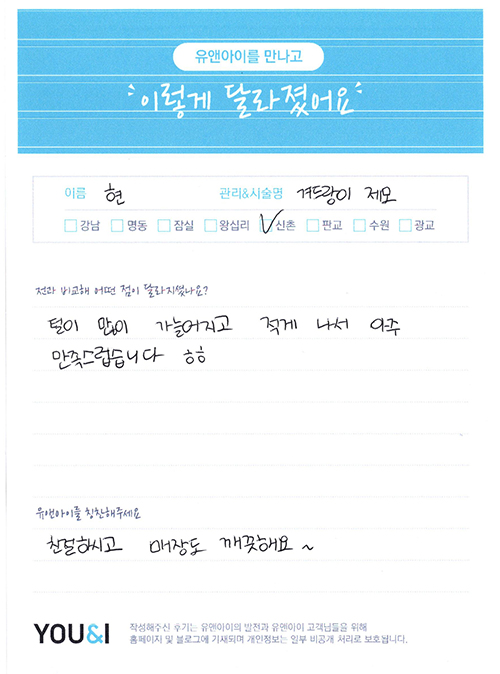 유앤아이를 만나고
이렇게 달라졌어요
이름 현 관리&시술명 겨드랑이 제모
강남 명동 잠실 왕십리 신촌 판교 수원 광교
전과 비교해 어떤 점이 달라지셨나요?
털이 많이 가늘어지고 적게 나서 아주
만족스럽습니다 ㅎㅎ
유앤아이를 칭찬해주세요
친절하시고 매장도 깨끗해요~
YOU&I
작성해주신 후기는 유앤아이의 발전과 유앤아이 고객님들을 위해
홈페이지 및 블로그에 기재되며 개인정보는 일부 비공개 처리로 보호됩니다.